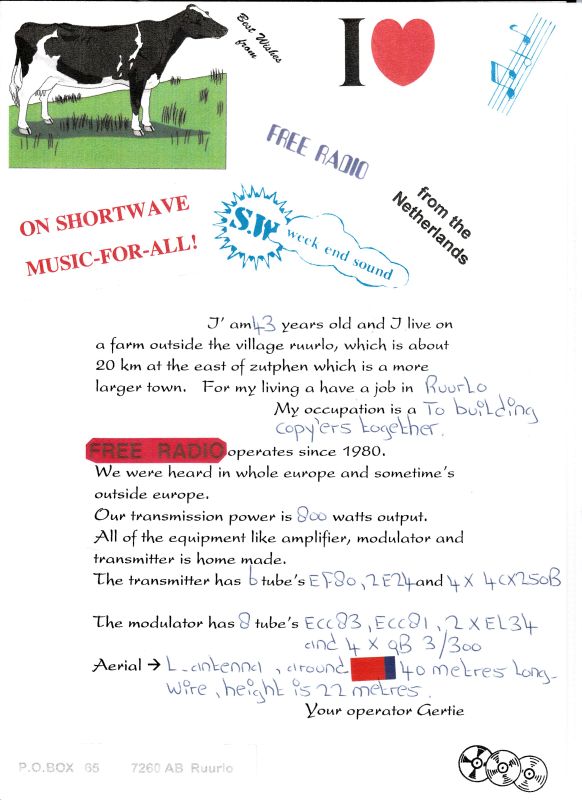 Best Wishes
from
I
FREE RADIO
from the
Netherlands
ON SHORTWAVE
MUSIC-FOR-ALL!
S.W week end sound
I' am 43 years old and I live on
a farm outside the village ruurlo, which is about
20 km at the east of zutphen which is a more
larger town. For my living a have a job in Ruurlo
My occupation is a To building
copy'ers together.
FREE RADIO operates since 1980.
We were heard in whole europe and sometime's
outside europe.
Our transmission power is 800 watts output.
All of the equipment like amplifier, modulator and
transmitter is home made.
The transmitter has 6 tube's EF80, 2E24 and 4 X 4CX250B
The modulator has 8 tube's Ecc83, Ecc81, 2 X EL34
and 4 X QB 3/300
Aerial → L-antenna, around 40 metres Long-
wire, height is 22 metres.
Your operator Gertie
P.O.BOX 65 7260 AB Ruurlo